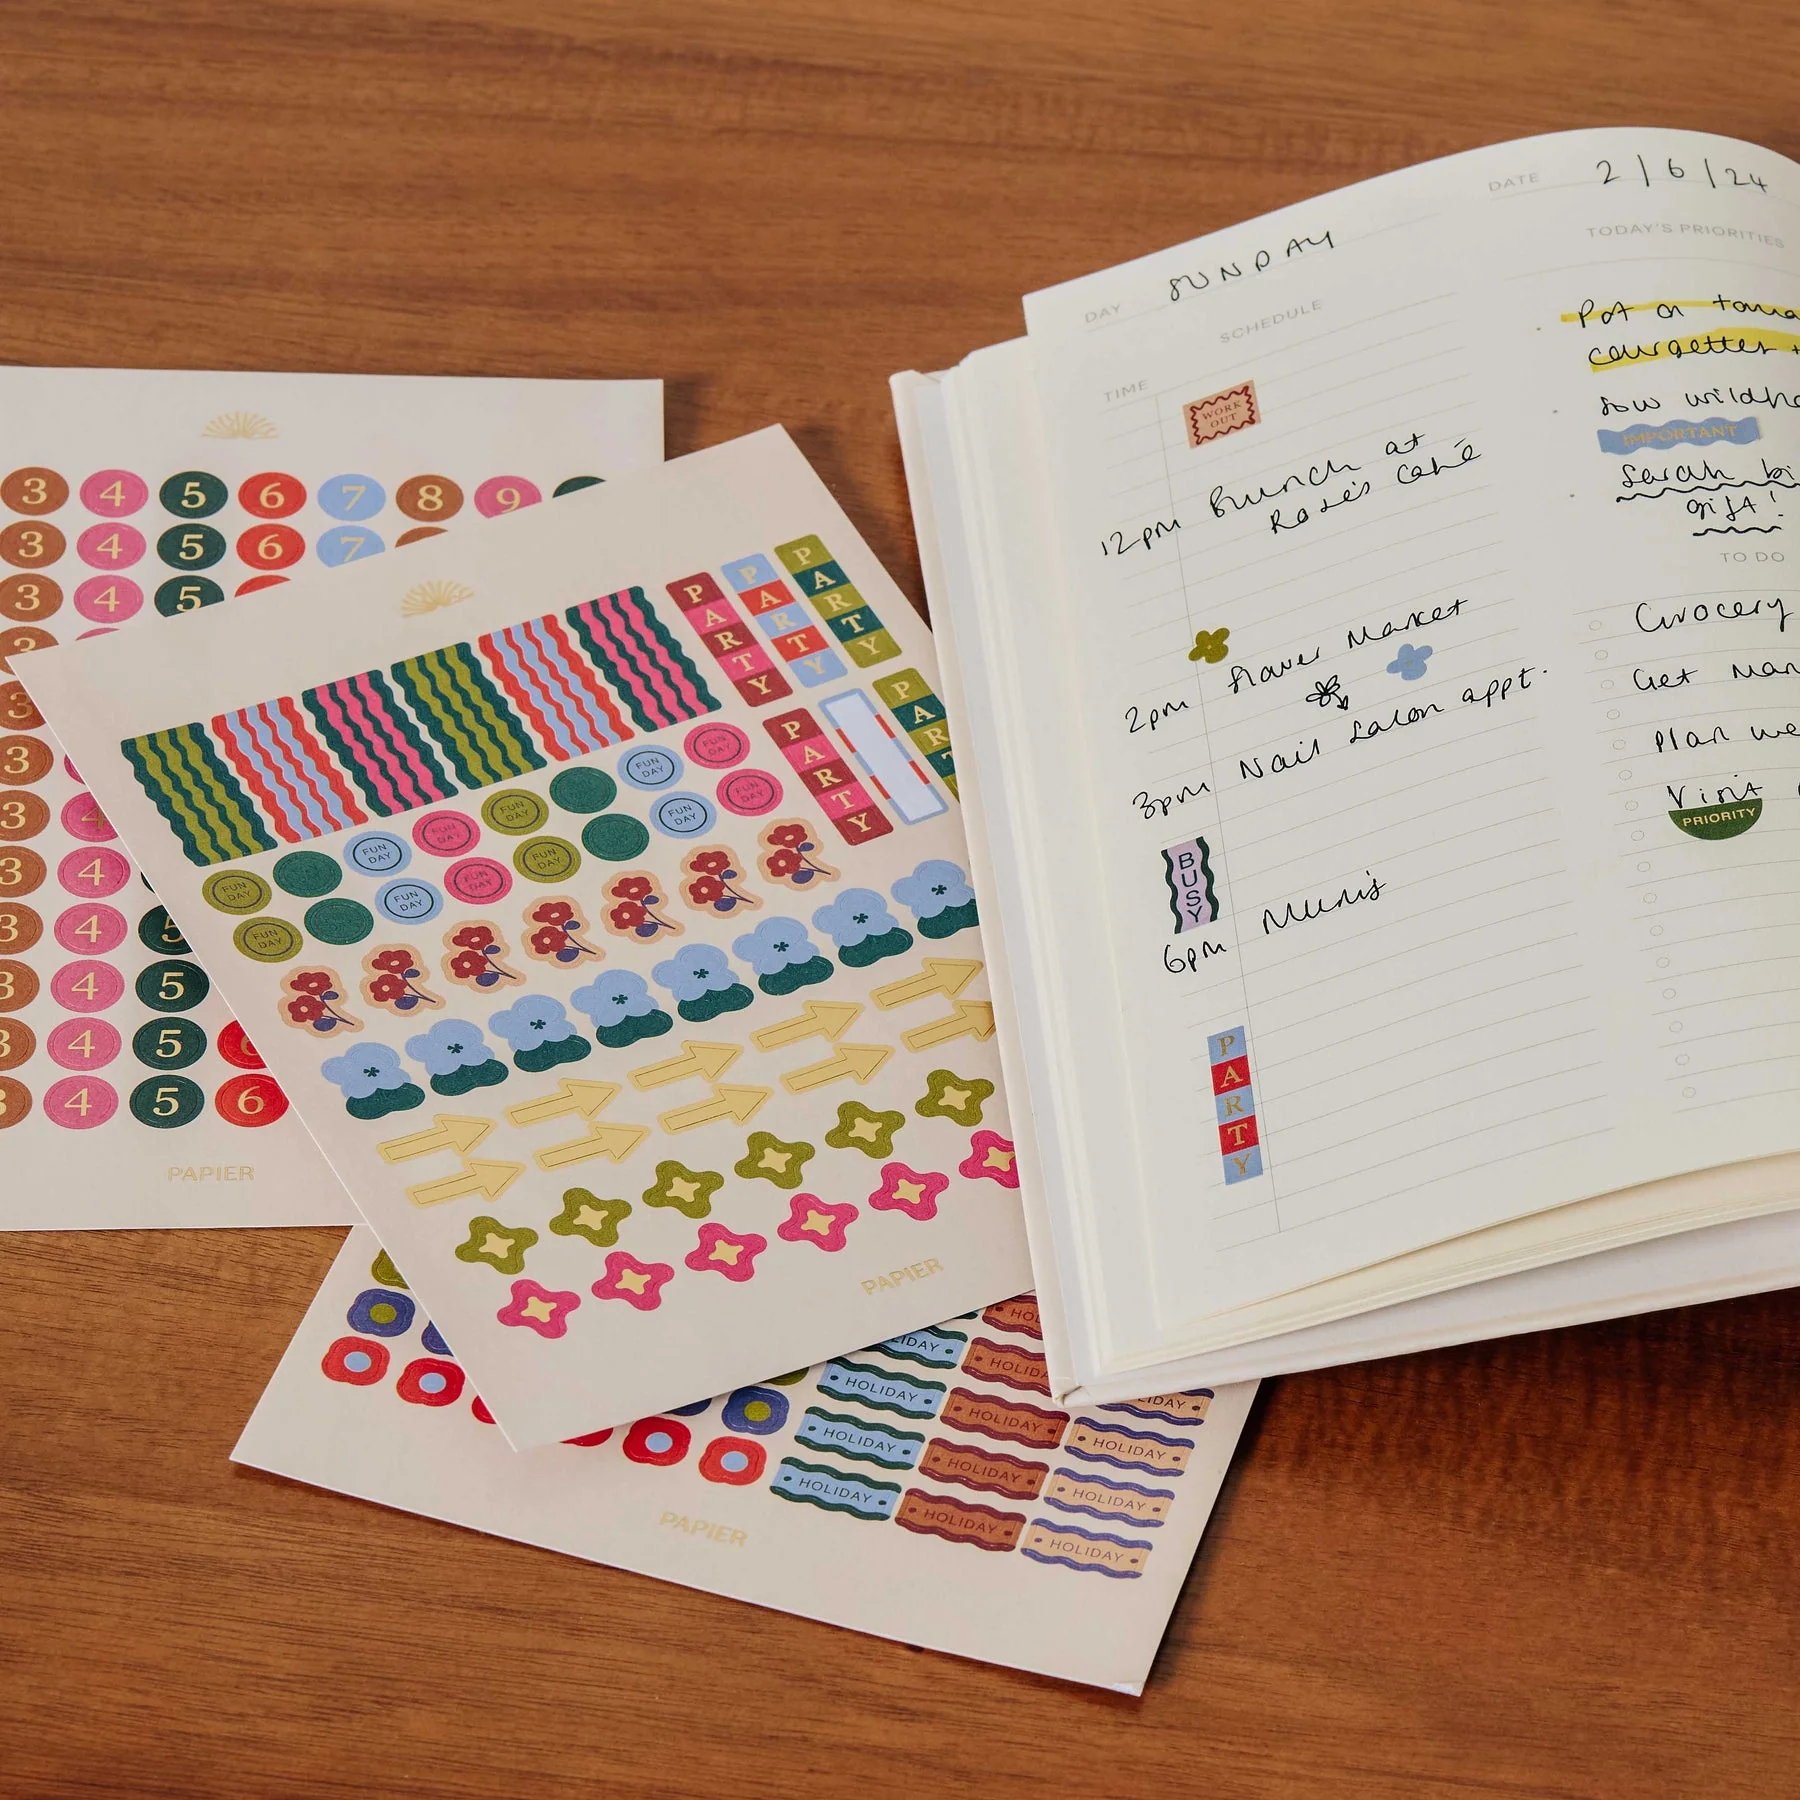 DAY SUNDAY
DATE 2/6/24
SCHEDULE
TIME
WORK
OUT
12pm Brunch at
Rosie's Café
2pm flower Market
3pm Nail Salon appt.
BUSY
6pm Mum's
PARTY
TODAY'S PRIORITIES
Pot on
courgettes +
Sow
IMPORTANT
Sarah
gift!
TO DO
Grocery
Get
Plan
Visit
PRIORITY
3 4 5 6 7 8 9
3 4 5 6 7
3 4 5
3
3
3 4
3 4
3 4 5
3 4 5
3 4 5 6
3 4 5 6
PAPIER
PARTY PARTY PARTY
PARTY PART
FUN DAY FUN DAY FUN DAY FUN DAY FUN DAY
FUN DAY FUN DAY FUN DAY FUN DAY FUN DAY
PAPIER
HOLIDAY
HOLIDAY HOLIDAY HOLIDAY
HOLIDAY HOLIDAY HOLIDAY
HOLIDAY HOLIDAY
PAPIER